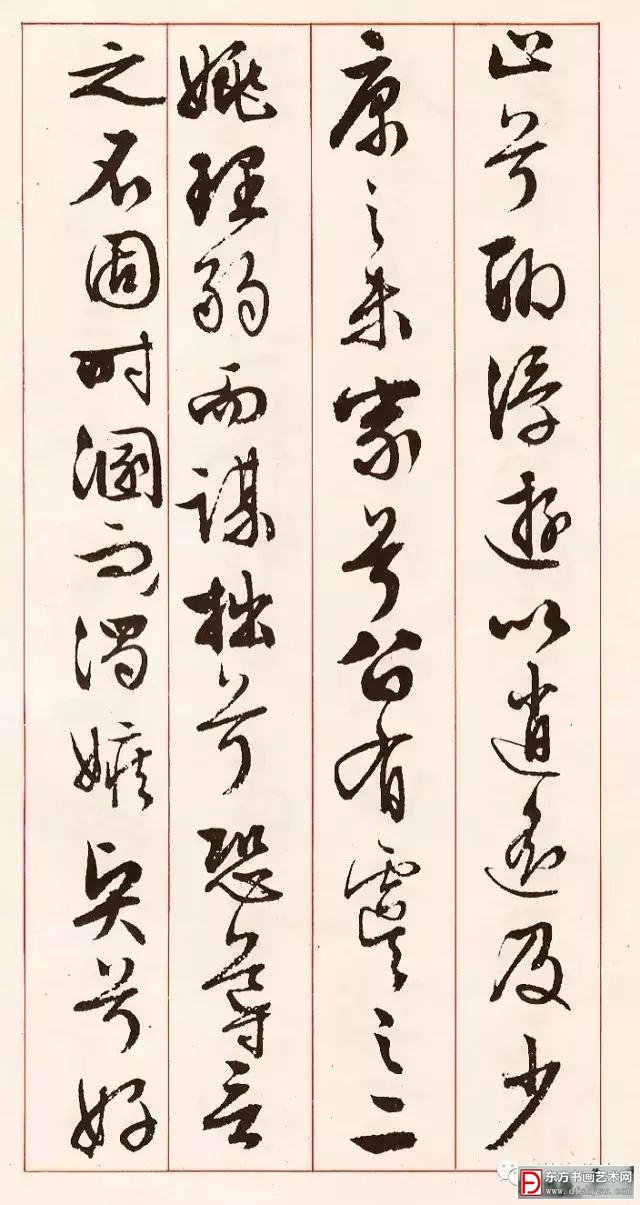 止兮聊浮遊以逍遙及少
康之未家兮留有虞之二
姚理弱而謀拙兮恐導言
之不固時溷而濁嫉賢兮好
东方书画艺术网
www.dfshysw.com